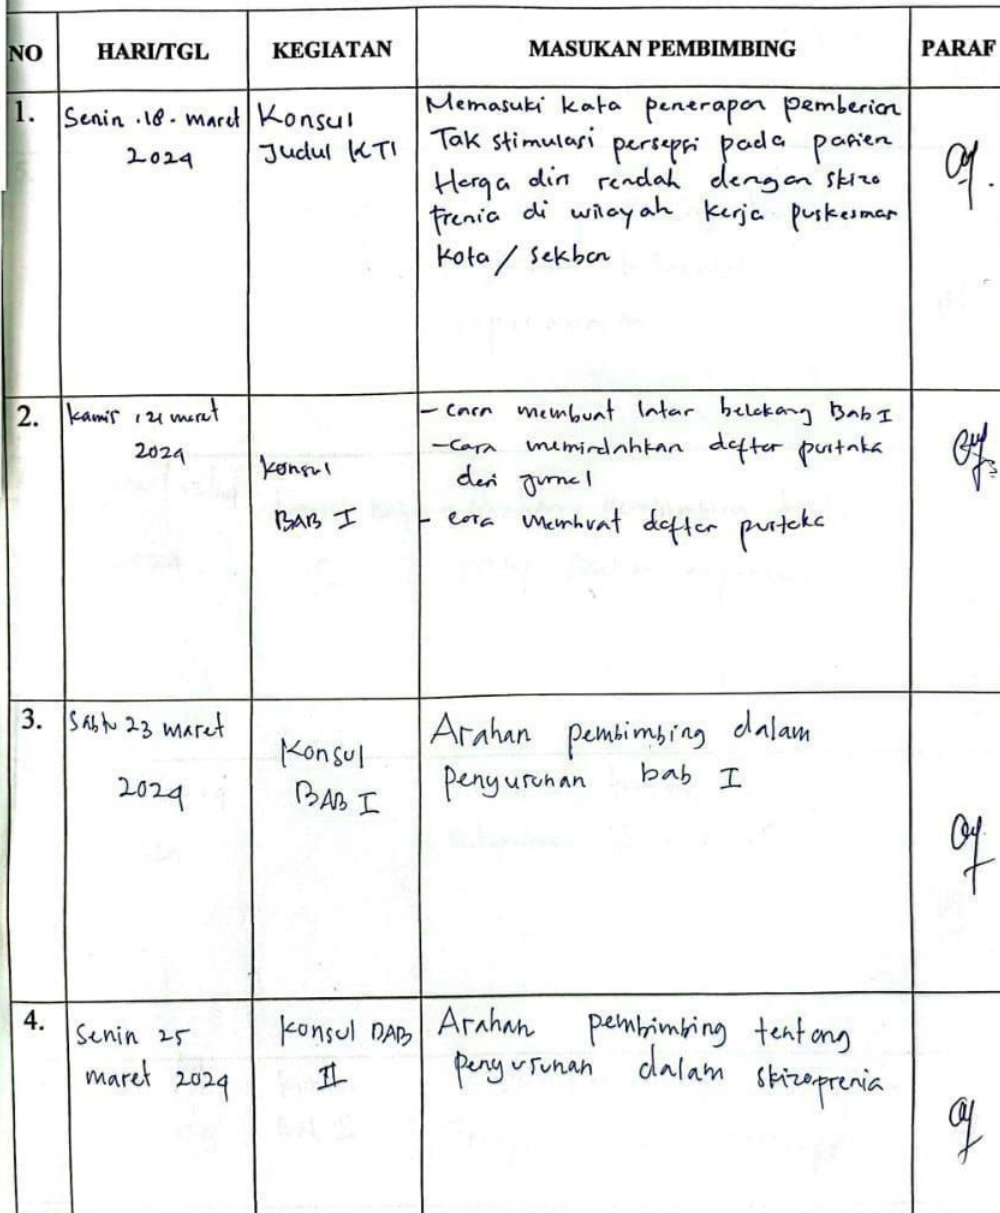 NO HARI/TGL KEGIATAN MASUKAN PEMBIMBING PARAF
1.
Senin .18. maret
2024
Konsul
Judul KTI
Memasuki kata penerapan pemberian
Tak stimulasi persepsi pada pasien
Harga diri rendah dengan skizo
frenia di wilayah kerja puskesmas
Kota / Sekban
2.
kamis, 21 maret
2024
Konsul
BAB I
- cara membuat latar belakang Bab I
- cara memindahkan daftar pustaka
dari jurnal
- cara membuat daftar pustaka
3.
Sabtu 23 maret
2024
Konsul
BAB I
Arahan pembimbing dalam
penyusunan bab I
4.
Senin 25
maret 2024
Konsul BAB
II
Arahan pembimbing tentang
penyusunan dalam skizoprenia